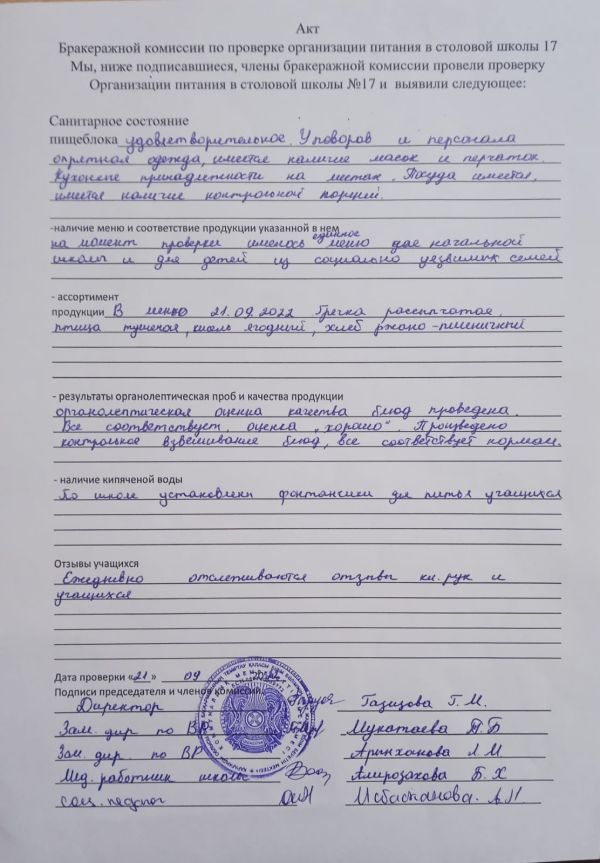 Акт
Бракеражной комиссии по проверке организации питания в столовой школы 17
Мы, ниже подписавшиеся, члены бракеражной комиссии провели проверку
Организации питания в столовой школы №17 и выявили следующее:
Санитарное состояние
пищеблока удовлетворительное. У поворов и персонала
опрятная одежда, имеется наличие масок и перчаток.
Кухонные принадлежности на местах. Посуда имеется,
имеется наличие контрольной порций.
-наличие меню и соответствие продукции указанной в нем
единное
на момент проверки имелось меню для начальной
школы и для детей из социально уязвимых семей
- ассортимент
продукции В меню 21.09.2022 Гречка рассыпчатая,
птица тушеная, кисель ягодный, хлеб ржано-пшеничный
- результаты органолептическая проб и качества продукции
органолептическая оценка качества блюд проведена.
Все соответствует, оценка „хорошо". Произведено
контрольное взвешивание блюд, все соответствует нормам.
- наличие кипяченой воды
По школе установлены фонтанчики для питья учащихся
Отзывы учащихся
Ежедневно отслеживаются отзывы кл. рук и
учащихся
Дата проверки «21» 09 2022
Подписи председателя и членов комиссии
Директор Газизова Г. М.
Зам. дир по ВР Мукатаева П. Б
Зам. дир по ВР Арынханова Л. М
Мед. работник школы Амирозакова Б. Х
соц. педагог Исбасканова. А. М.